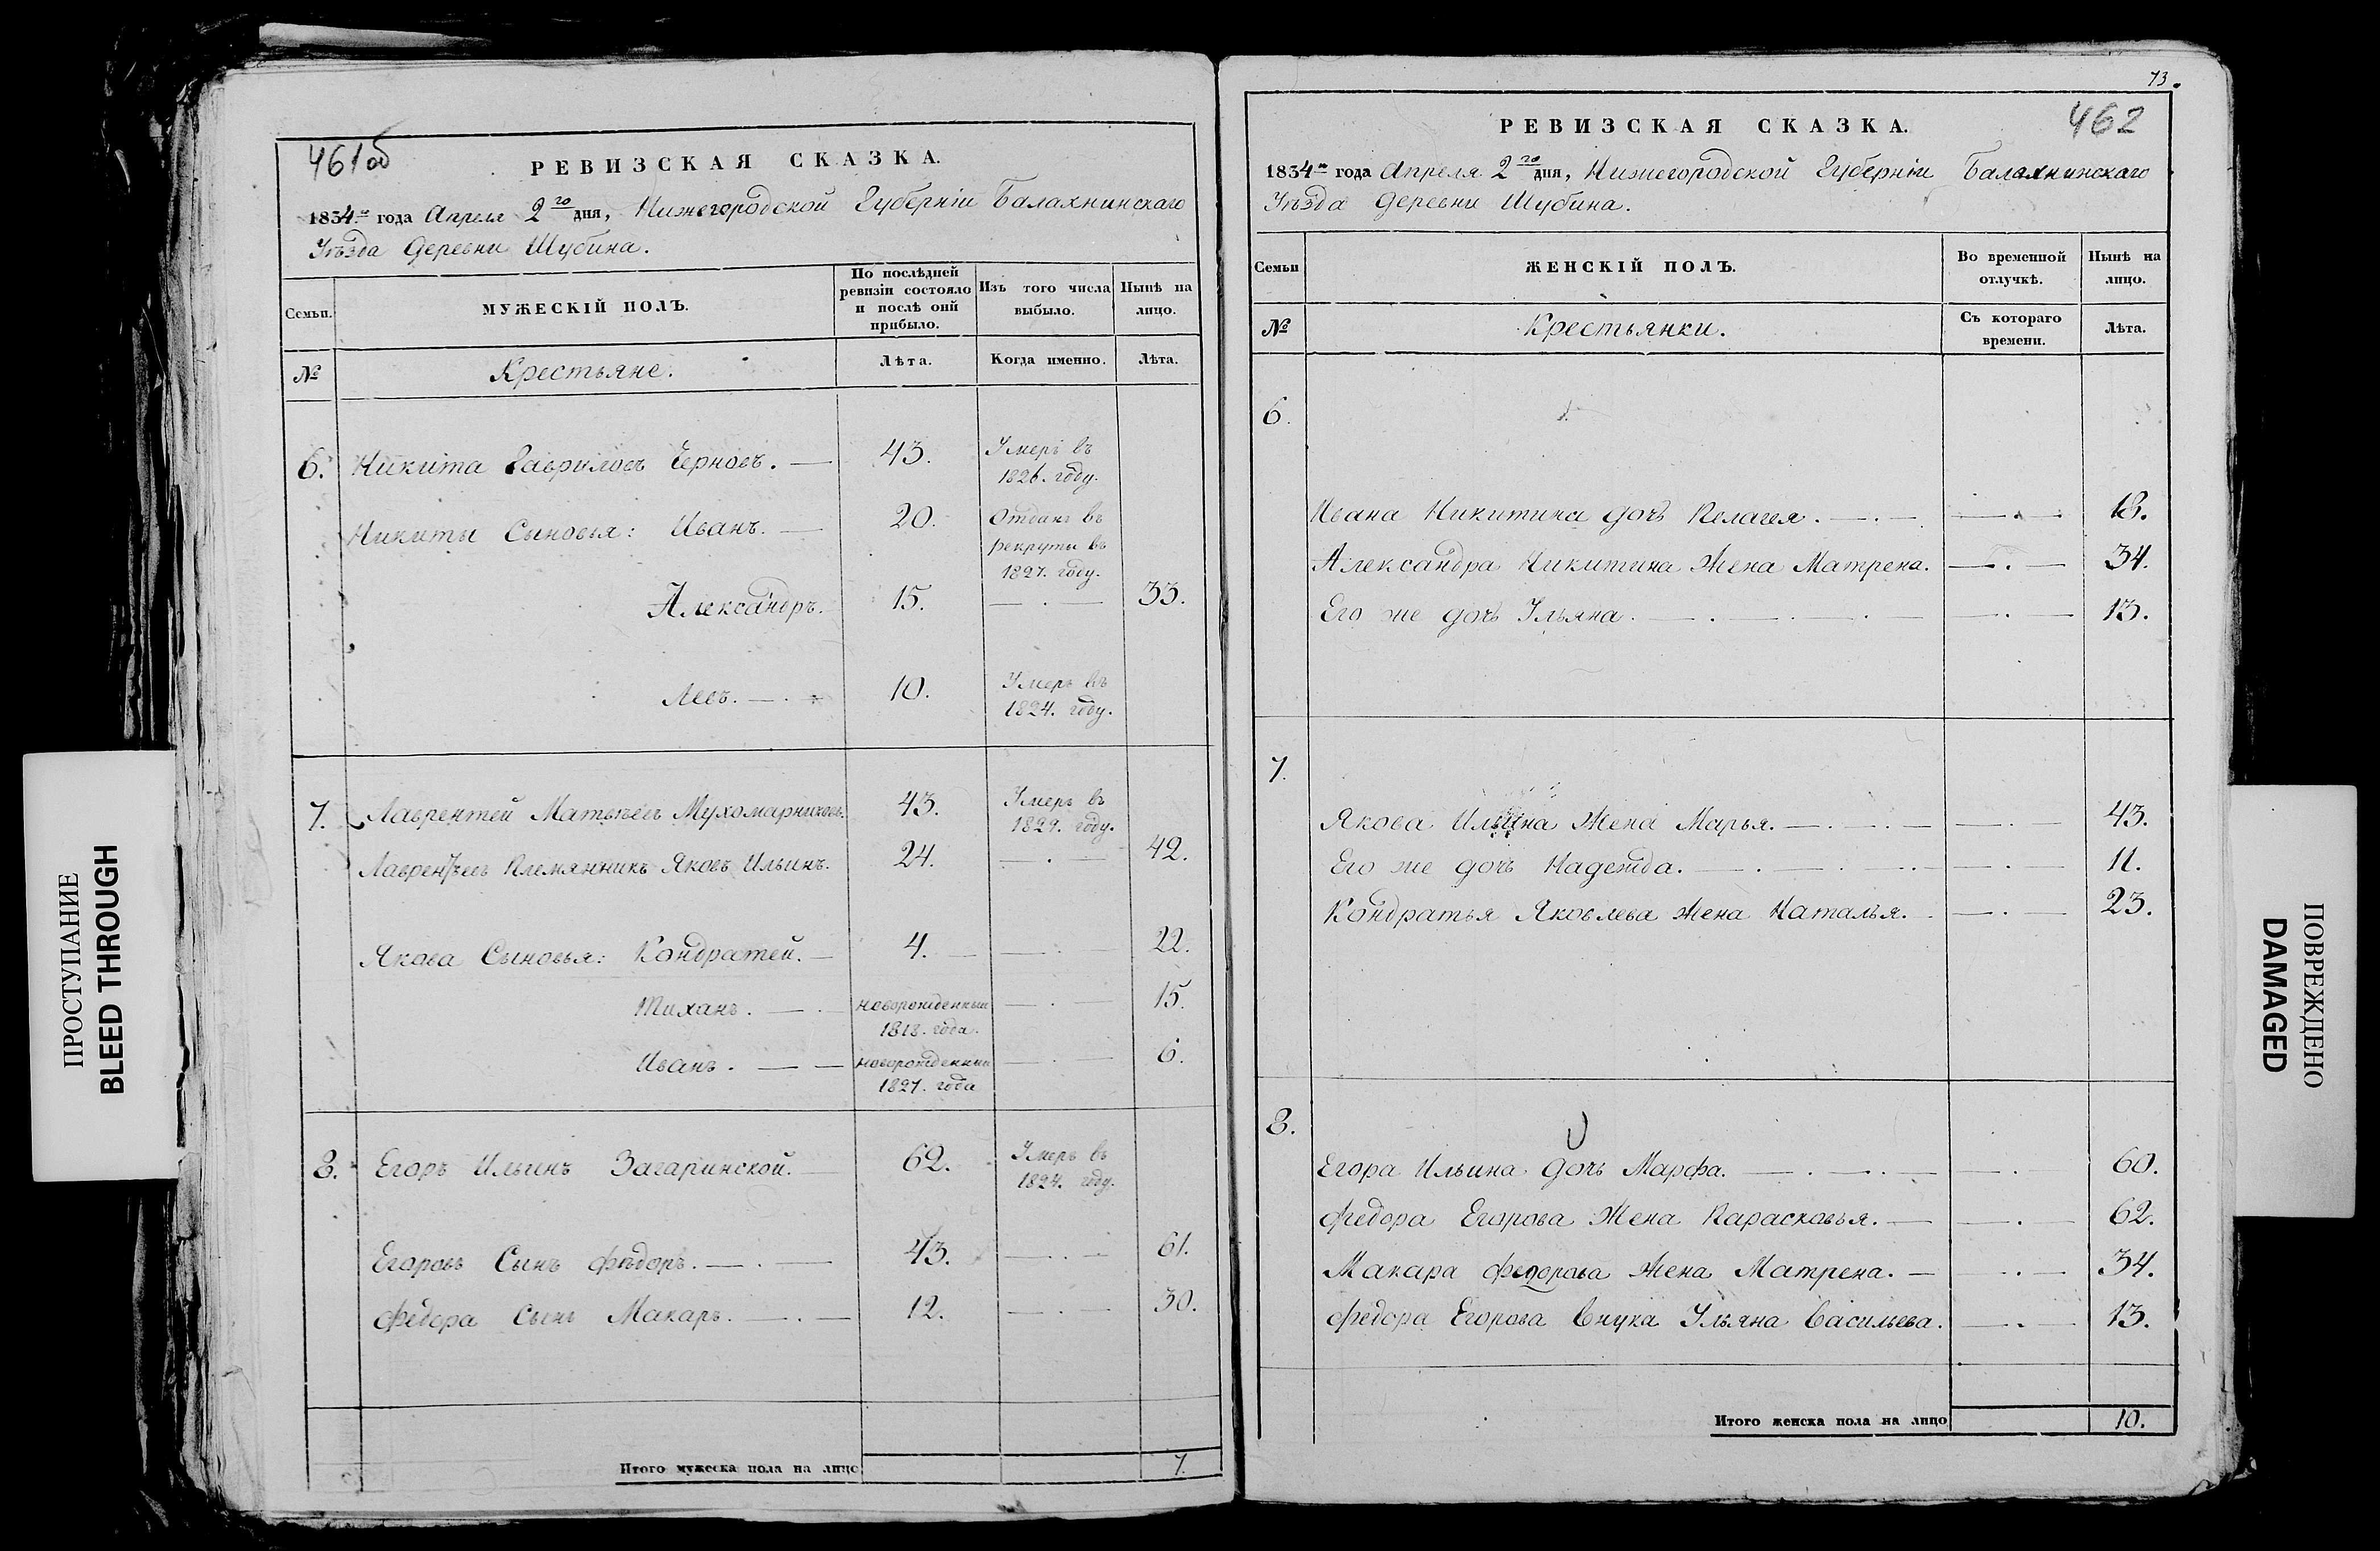 461об
РЕВИЗСКАЯ СКАЗКА.
1834го года Апреля 2го дня, Нижегородской Губерніи Балахнинскаго
Уѣзда Деревни Шубина.
Семьи.
МУЖЕСКІЙ ПОЛЪ.
По послѣдней ревизіи состояло и послѣ оной прибыло.
Изъ того числа выбыло.
Нынѣ на лицо.
№
Крестьяне.
Лѣта.
Когда именно.
Лѣта.
6. Никита Гавриловъ Черновъ. 43. Умеръ въ 1826. году.
Никиты Сыновья: Иванъ. 20. Отданъ въ рекруты въ 1827. году.
Александръ. 15. 33.
Левъ. 10. Умеръ въ 1824. году.
7. Лаврентей Матвѣевъ Мухомарниковъ. 43. Умеръ въ 1829. году.
Лаврентьевъ Племянникъ Яковъ Ильинъ. 24. 42.
Якова Сыновья: Кондратей. 4. 22.
Тиханъ. новорожденный 1818. года. 15.
Иванъ. новорожденный 1827. года 6.
8. Егоръ Ильинъ Загаринской. 62. Умеръ въ 1824. году.
Егоровъ Сынъ Фѣдоръ. 43. 61.
Федора Сынъ Макаръ. 12. 30.
Итого мужеска пола на лицо 7.
73.
462
РЕВИЗСКАЯ СКАЗКА.
1834го года Апреля 2го дня, Нижегородской Губерніи Балахнинскаго
Уѣзда Деревни Шубина.
Семьи
ЖЕНСКІЙ ПОЛЪ.
Во временной отлучкѣ.
Нынѣ на лицо.
№
Крестьянки.
Съ котораго времени.
Лѣта.
6.
Ивана Никитина дочь Пелагея. 18.
Александра Никитина Жена Матрена. 34.
Его же дочь Ульяна. 13.
7.
Якова Ильина Жена Марья. 43.
Его же дочь Надежда. 11.
Кондратья Яковлева Жена Наталья. 23.
8.
Егора Ильина дочь Марфа. 60.
Федора Егорова Жена Парасковья. 62.
Макара Федорова Жена Матрена. 34.
Федора Егорова Внука Ульяна Васильева. 13.
Итого женска пола на лицо 10.
ПРОСТУПАНИЕ
BLEED THROUGH
ПОВРЕЖДЕНО
DAMAGED